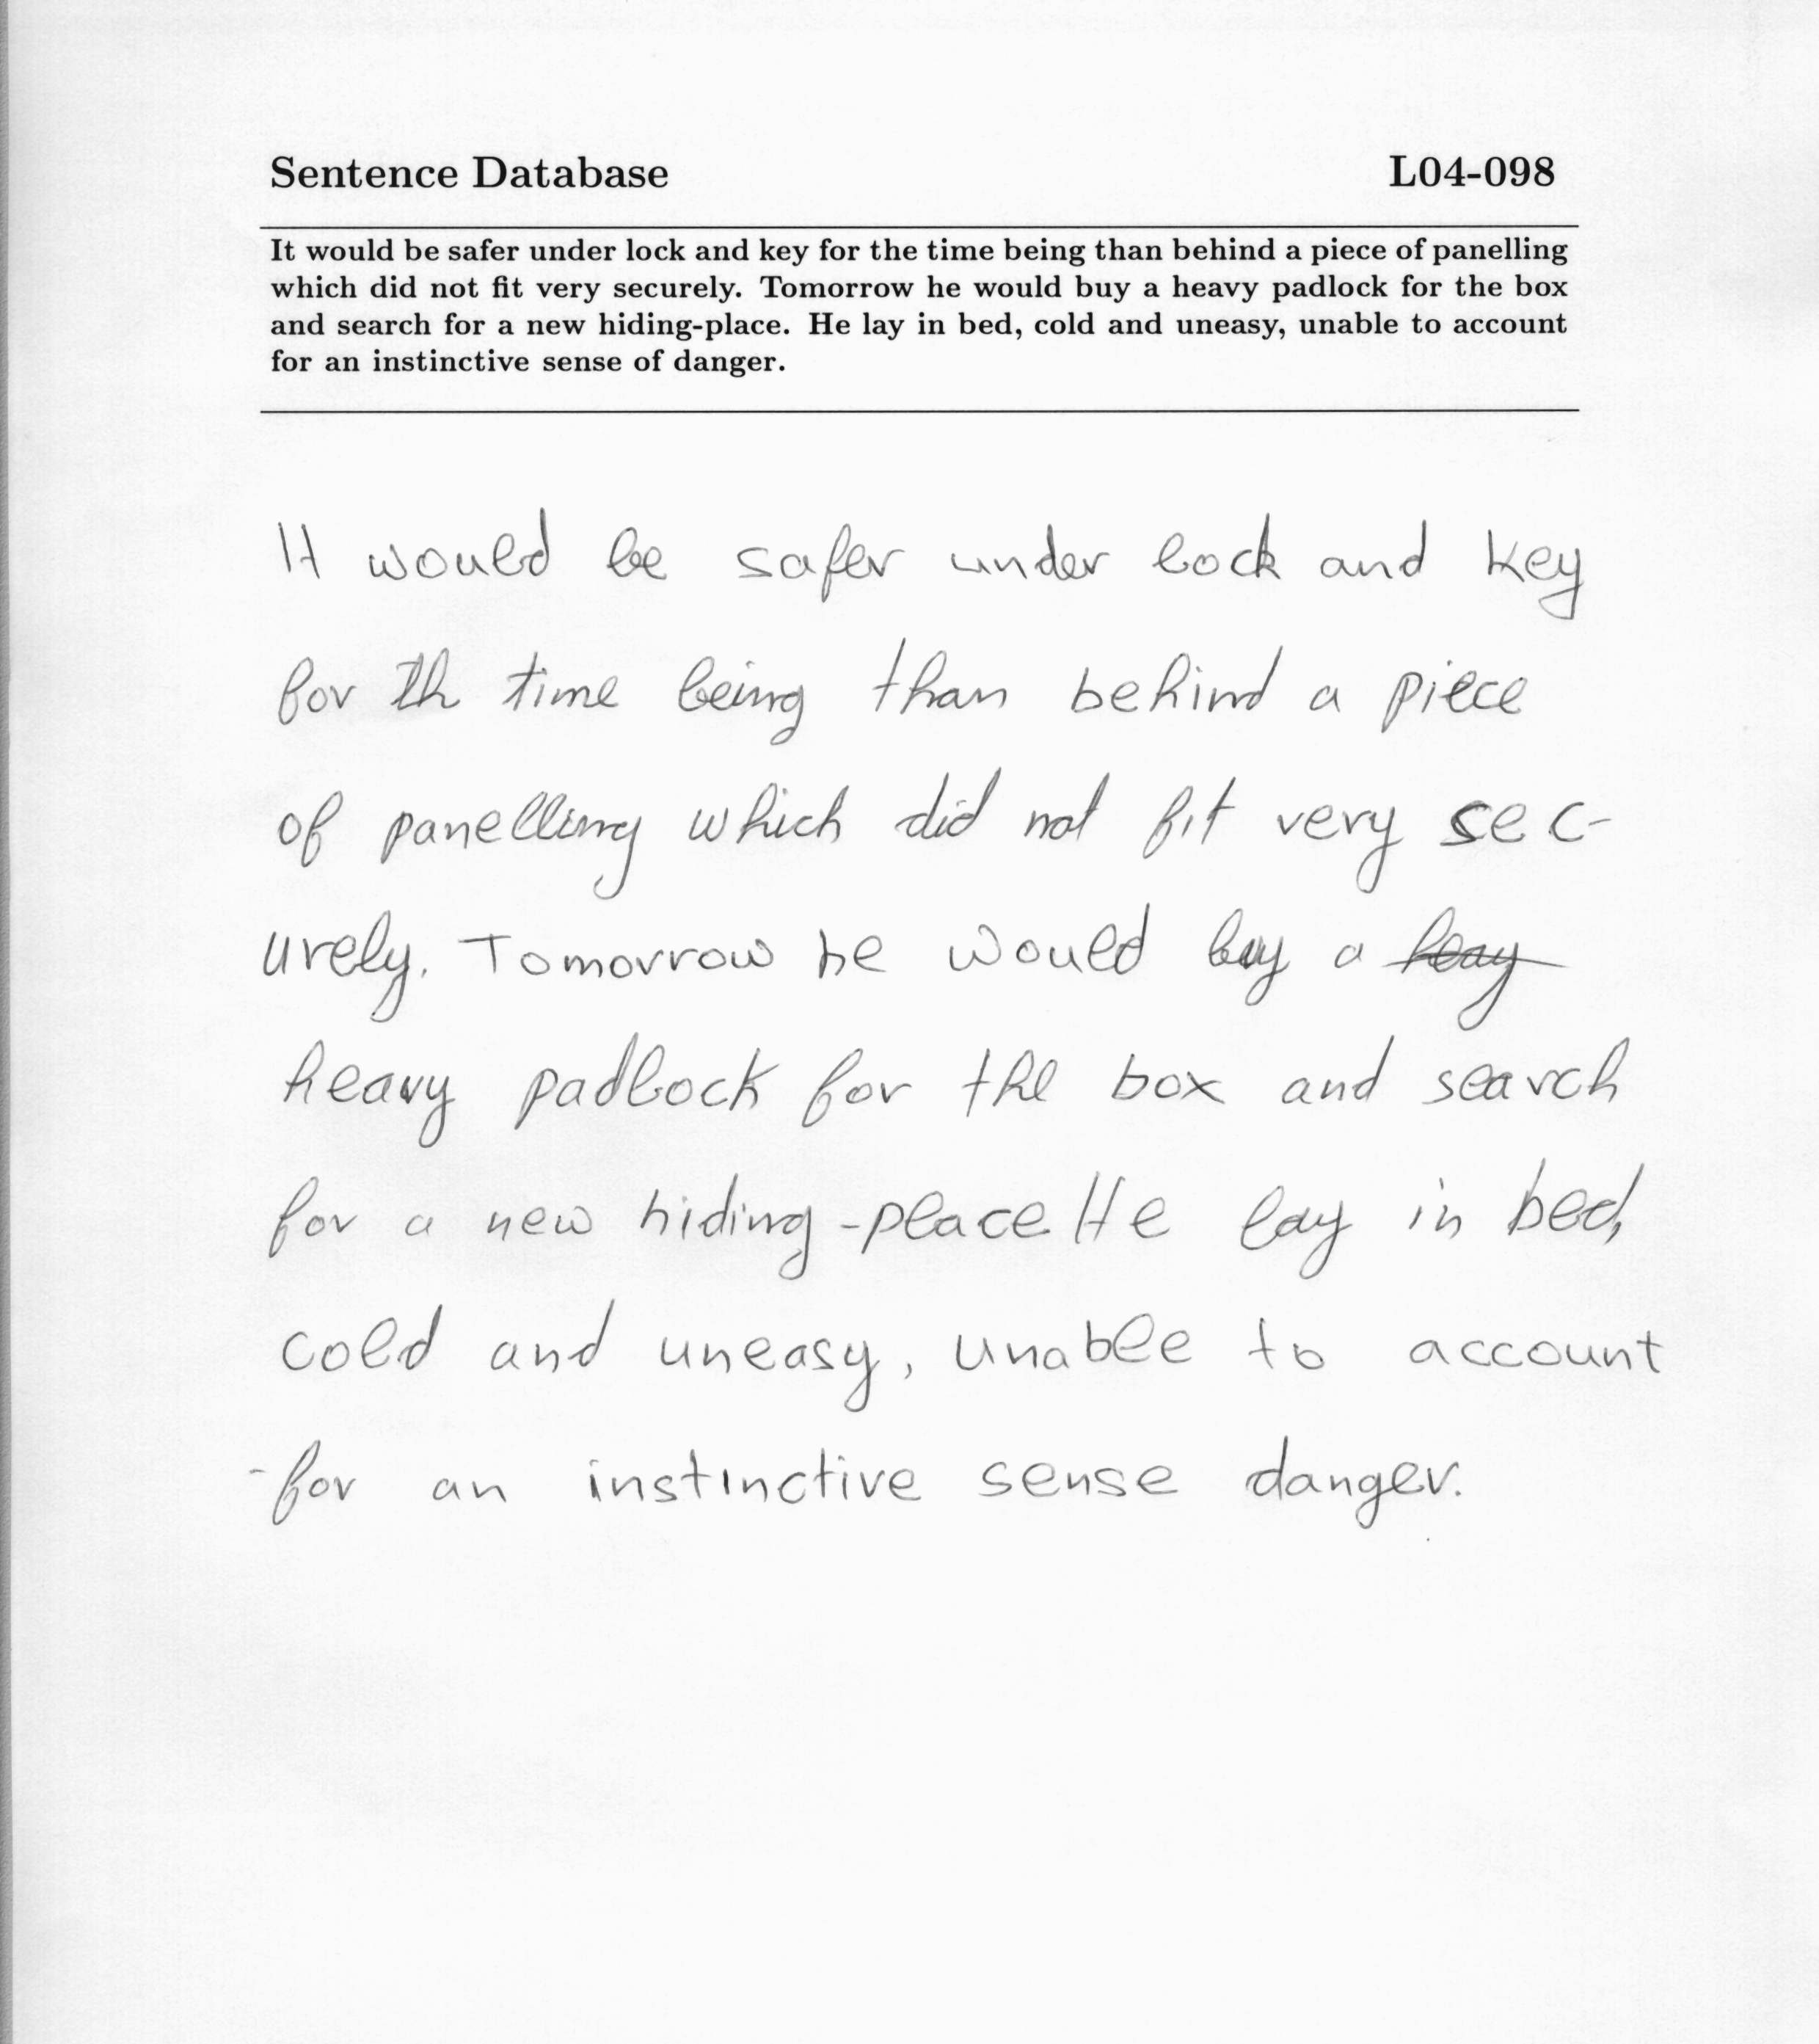 Sentence Database L04-098
It would be safer under lock and key for the time being than behind a piece of panelling
which did not fit very securely. Tomorrow he would buy a heavy padlock for the box
and search for a new hiding-place. He lay in bed, cold and uneasy, unable to account
for an instinctive sense of danger.
It would be safer under lock and key
for th time being than behind a piece
of panelling which did not fit very sec-
urely. Tomorrow he would buy a heay
heavy padlock for the box and search
for a new hiding-place. He lay in bed,
cold and uneasy, unable to account
for an instinctive sense danger.